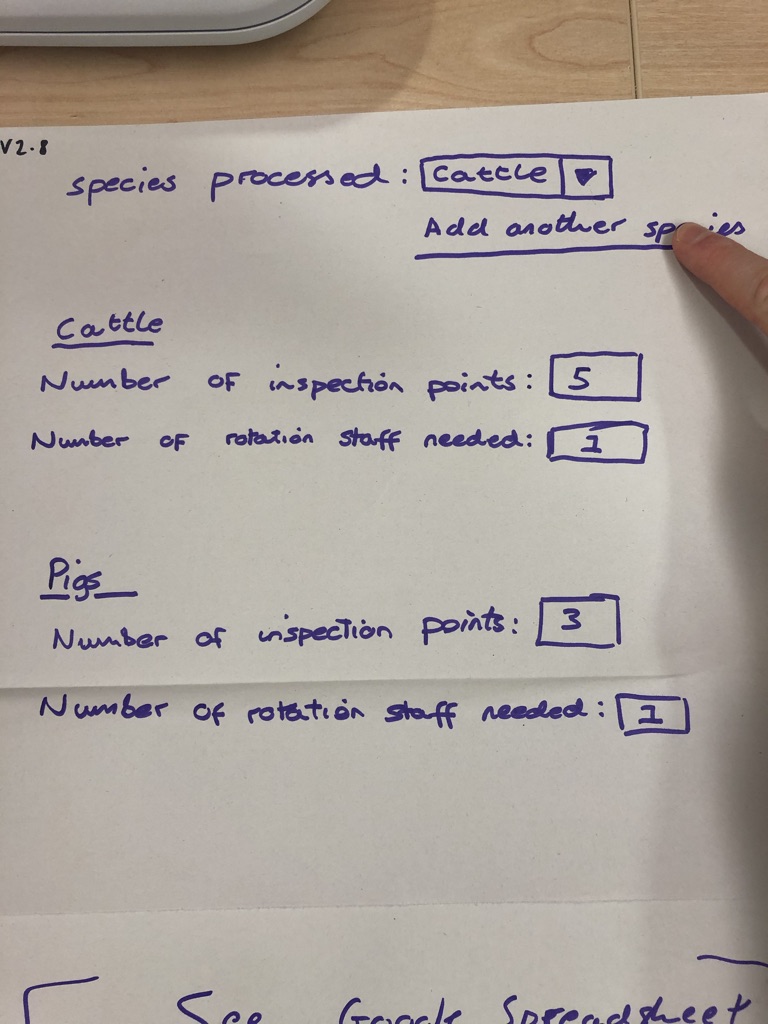 V2.8
species processed: Cattle
Add another species
Cattle
Number of inspection points: 5
Number of rotation staff needed: 1
Pigs
Number of inspection points: 3
Number of rotation staff needed: 1
See Google Spreadsheet